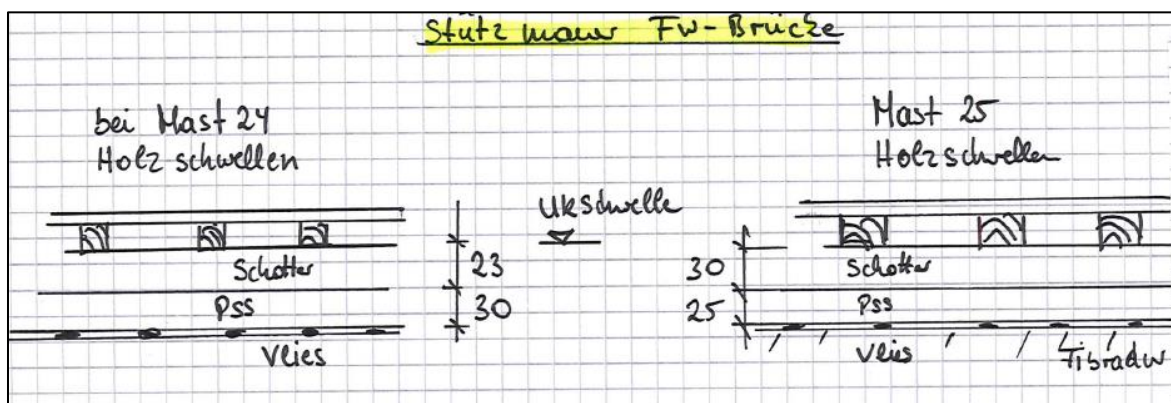 Stützmauer FW-Brücke
bei Mast 24
Holzschwellen
Schotter
PSS
Vlies
23
30
UKSchwelle
Mast 25
Holzschwellen
30
25
Schotter
PSS
Vlies